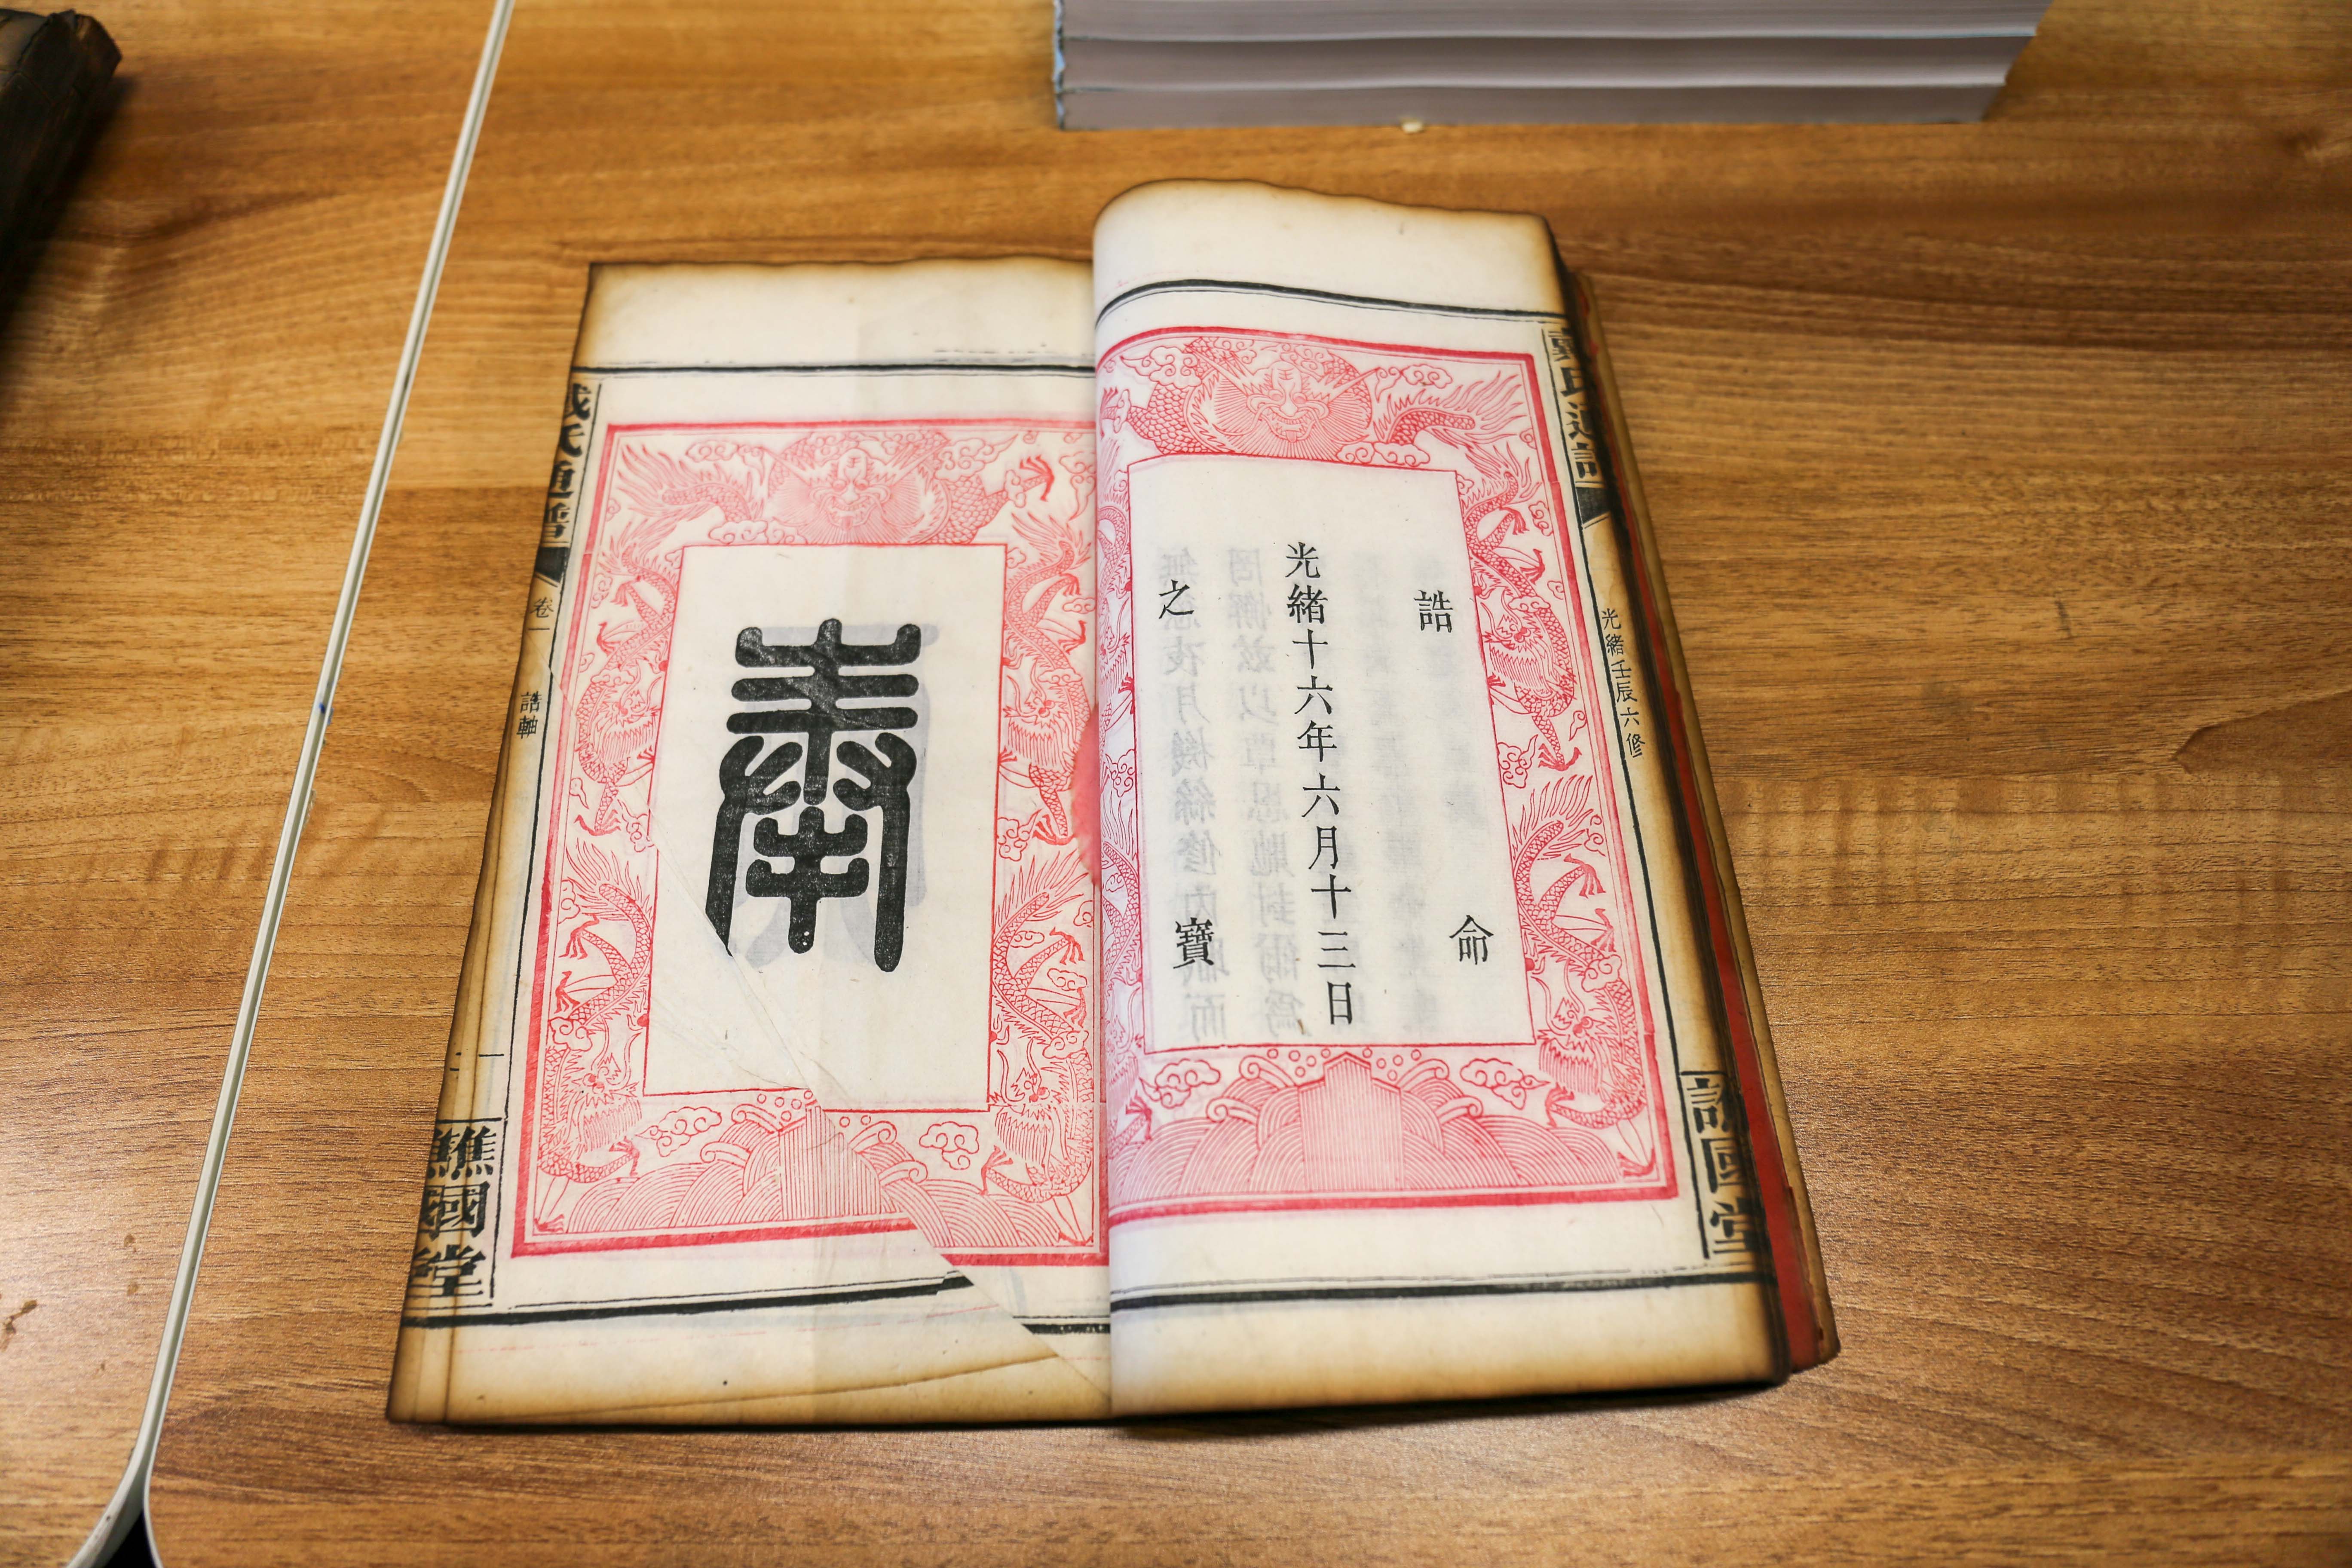 戴氏通譜
光緒壬辰六修
譙國堂
誥命
光緒十六年六月十三日
之寶
奉
戴氏通譜
卷一
誥軸
譙國堂